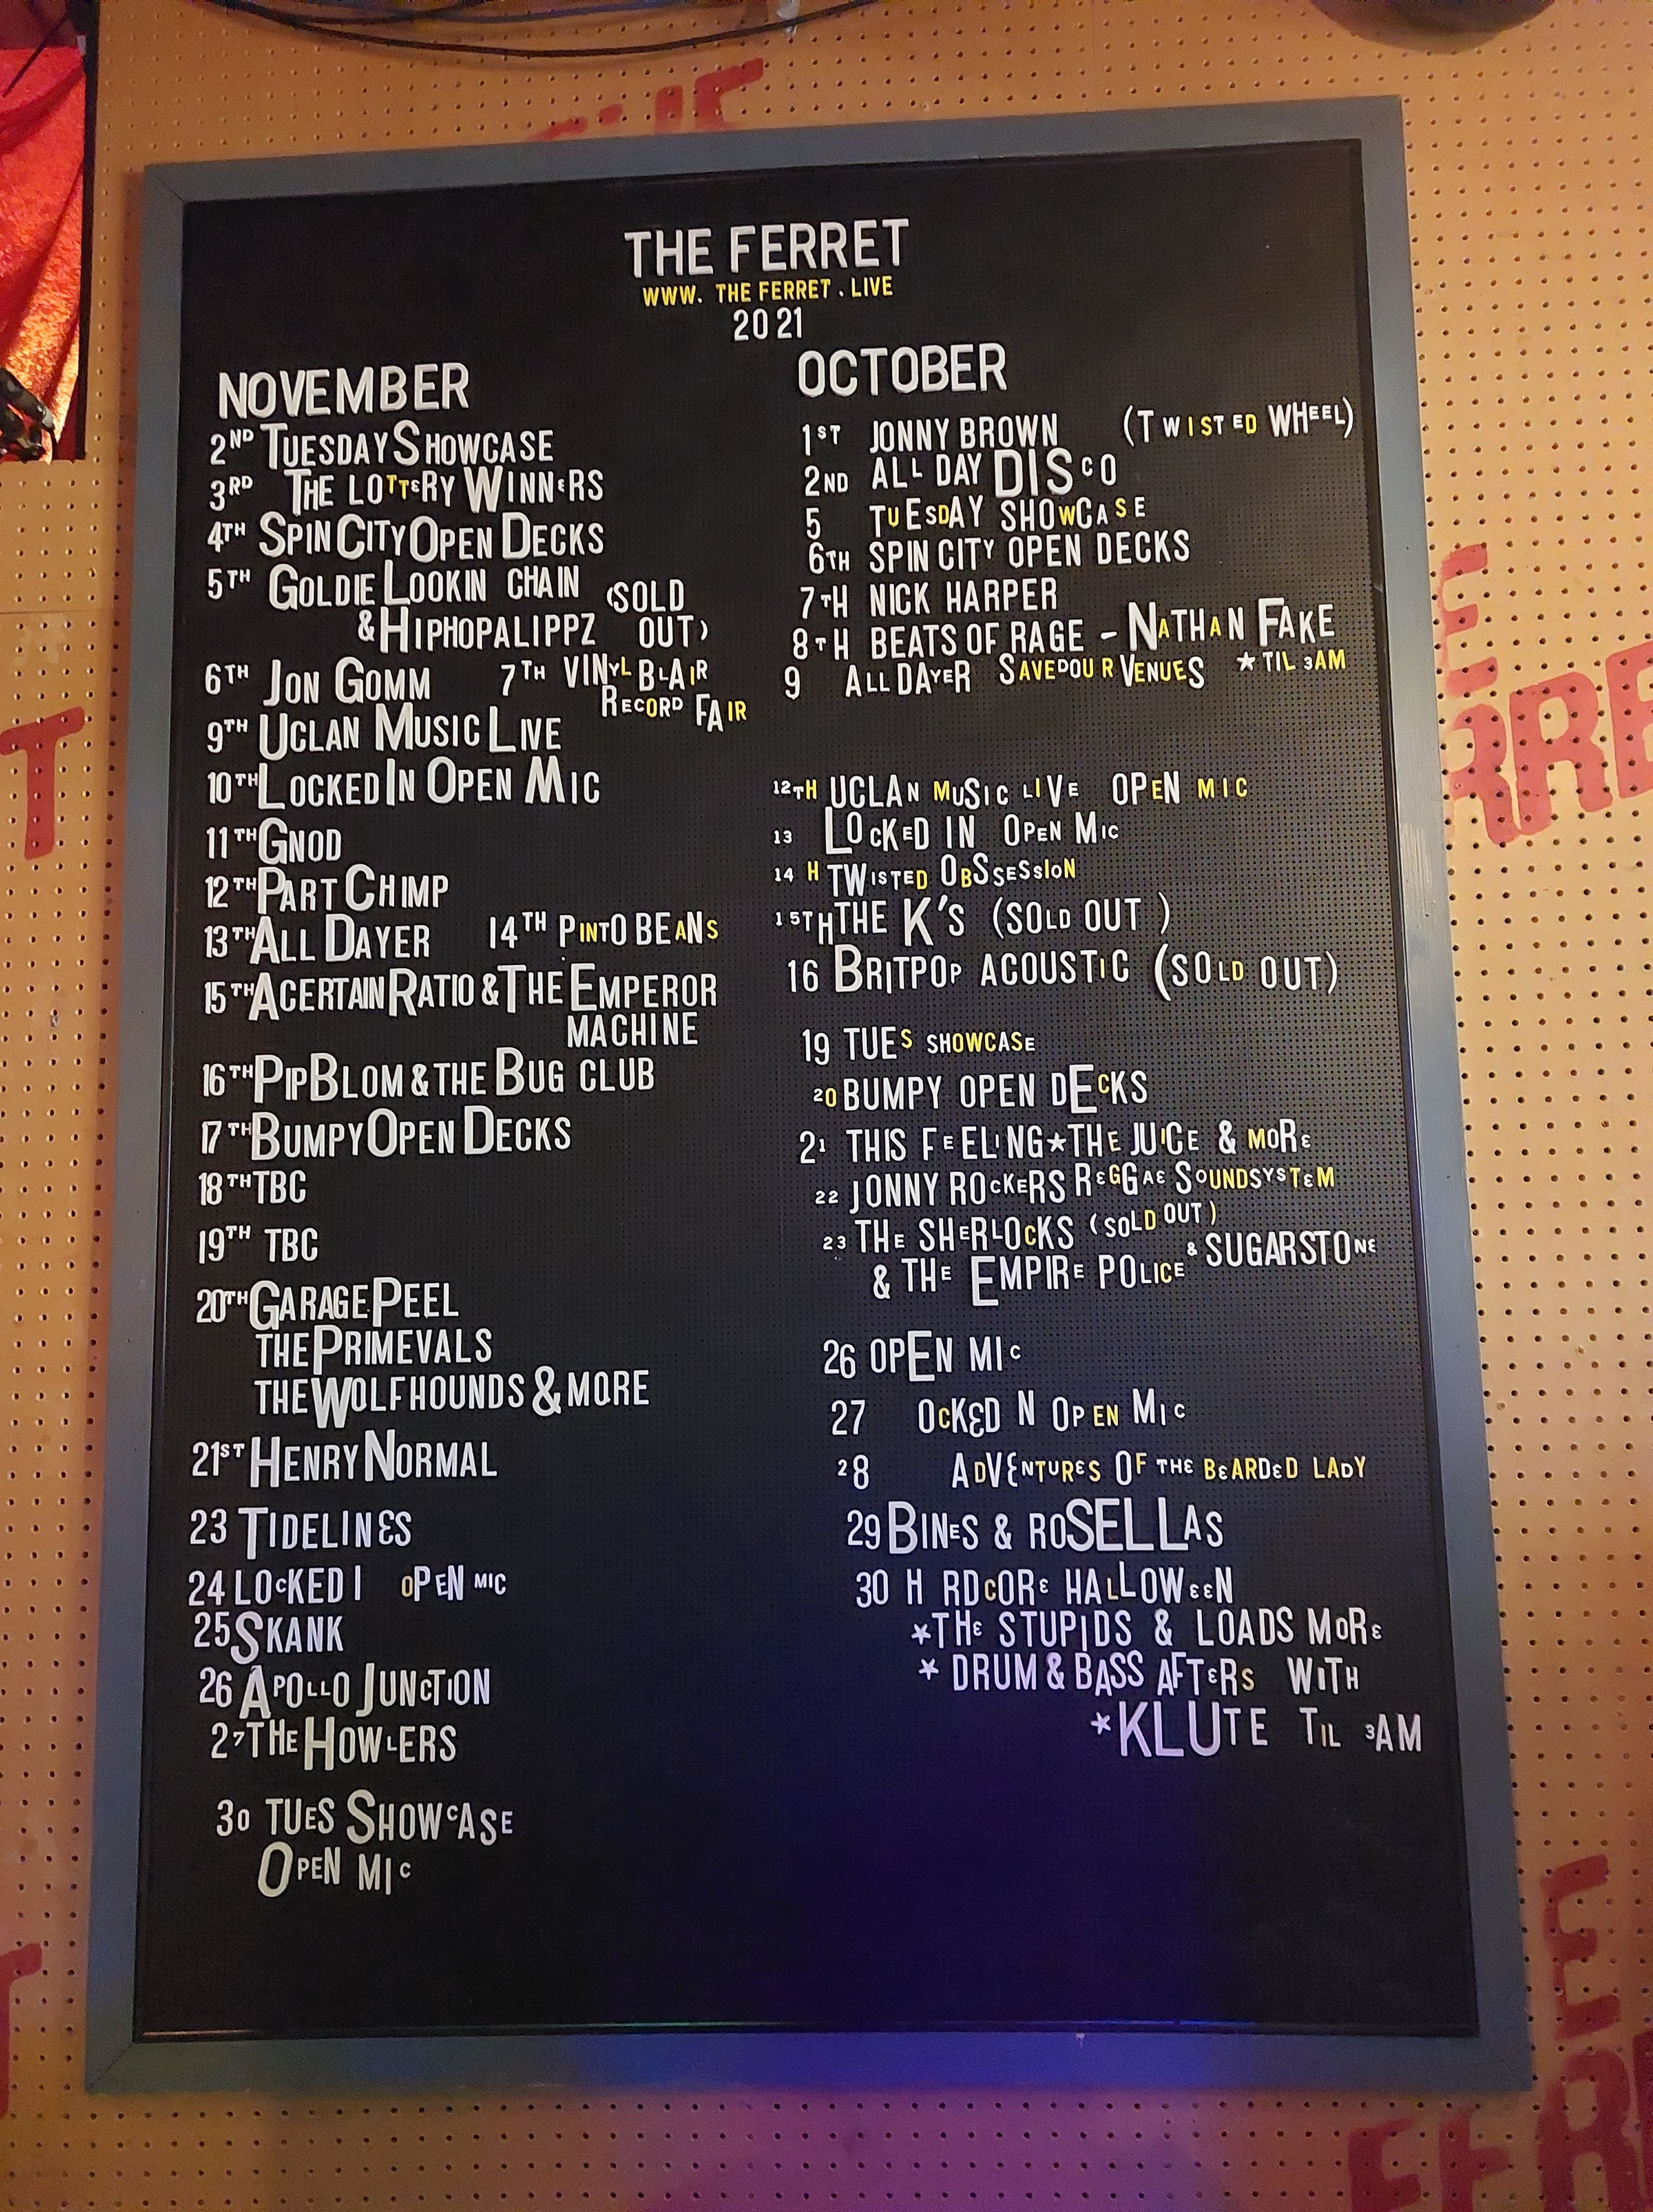 THE FERRET
WWW. THE FERRET . LIVE
2021
NOVEMBER
2ND TUESDAY SHOWCASE
3RD THE LOTTERY WINNERS
4TH SPIN CITY OPEN DECKS
5TH GOLDIE LOOKIN CHAIN (SOLD
& HIPHOPALIPPZ OUT)
6TH JON GOMM 7TH VINYL BLAIR
RECORD FAIR
9TH UCLAN MUSIC LIVE
10TH LOCKED IN OPEN MIC
11TH GNOD
12TH PART CHIMP
13TH ALL DAYER 14TH PINTO BEANS
15TH A CERTAIN RATIO & THE EMPEROR
MACHINE
16TH PIP BLOM & THE BUG CLUB
17TH BUMPY OPEN DECKS
18TH TBC
19TH TBC
20TH GARAGE PEEL
THE PRIMEVALS
THE WOLFHOUNDS & MORE
21ST HENRY NORMAL
23 TIDELINES
24 LOCKED I OPEN MIC
25 SKANK
26 APOLLO JUNCTION
27 THE HOWLERS
30 TUES SHOWCASE
OPEN MIC
OCTOBER
1ST JONNY BROWN (TWISTED WHEEL)
2ND ALL DAY DISCO
5 TUESDAY SHOWCASE
6TH SPIN CITY OPEN DECKS
7TH NICK HARPER
8TH BEATS OF RAGE - NATHAN FAKE
9 ALL DAYER SAVEDOUR VENUES ★ TIL 3AM
12TH UCLAN MUSIC LIVE OPEN MIC
13 LOCKED IN OPEN MIC
14 H TWISTED OBSSESSION
15TH THE K'S (SOLD OUT )
16 BRITPOP ACOUSTIC (SOLD OUT)
19 TUES SHOWCASE
20 BUMPY OPEN DECKS
21 THIS FEELING ★ THE JUICE & MORE
22 JONNY ROCKERS REGGAE SOUNDSYSTEM
23 THE SHERLOCKS (SOLD OUT)
& THE EMPIRE POLICE & SUGARSTONE
26 OPEN MIC
27 OCKED N OPEN MIC
28 ADVENTURES OF THE BEARDED LADY
29 BINES & ROSELLAS
30 H RDCORE HALLOWEEN
★ THE STUPIDS & LOADS MORE
★ DRUM & BASS AFTERS WITH
★ KLUTE TIL 3AM